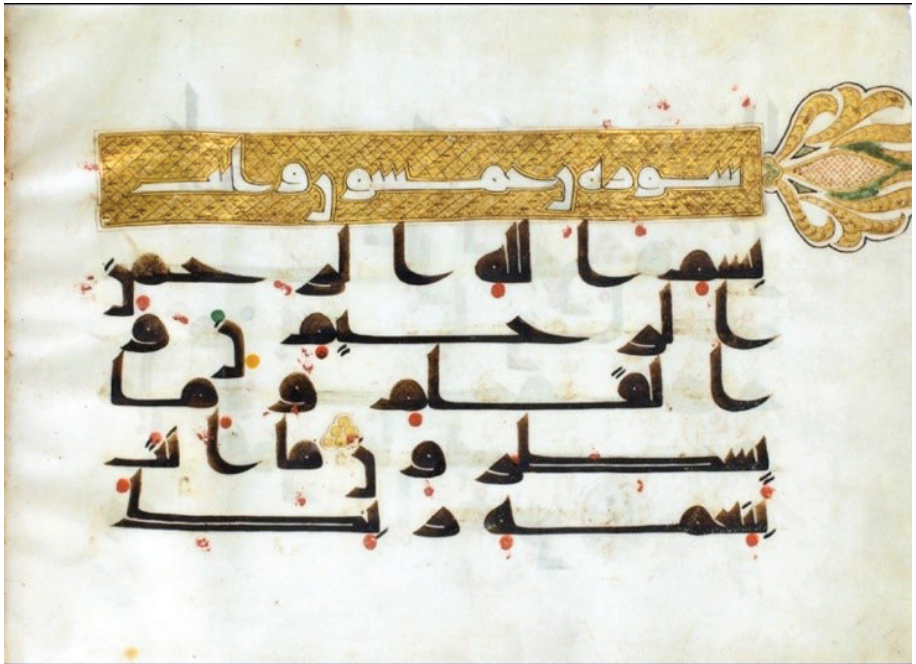 سورة ن خمسون و
بسم الله الرحمن
الرحيم ن و
القلم وما
يسطرون ما أنت
بنعمة ربك